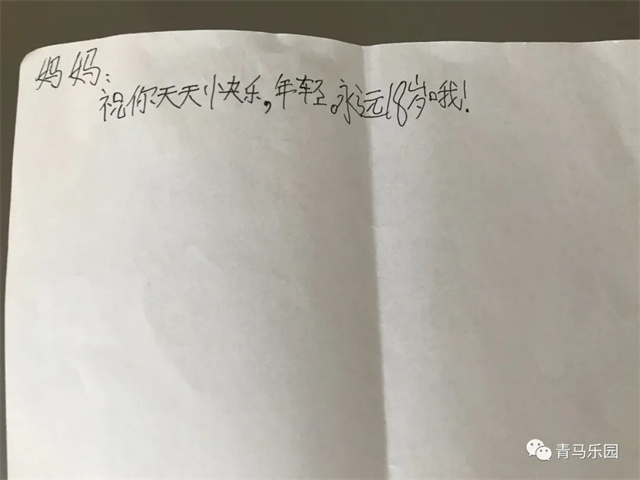 妈妈：
祝你天天快乐，年轻。永远18岁哦！
青马乐园